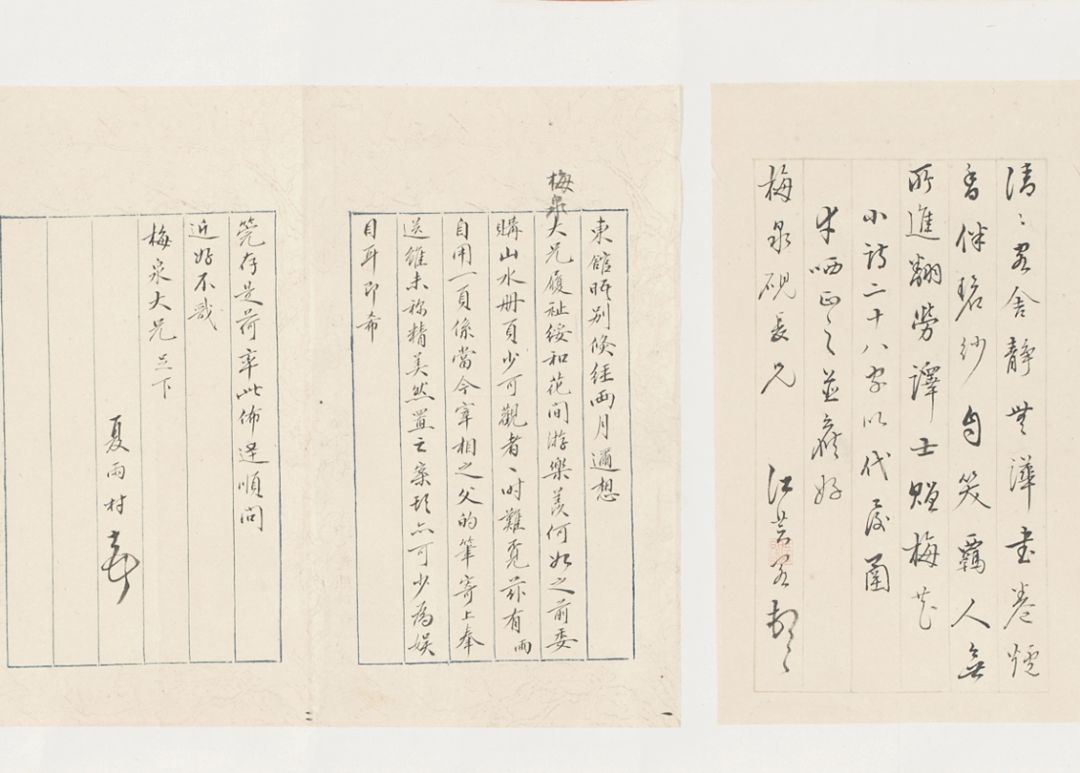 清〻客舍靜無譁書卷爐
香伴碧紗自笑羈人無
所進翻勞譯士贈梅花
小詩二十八字以代
哂正之並候好
梅泉硯長兄 江芸
東館晤別倏經兩月遙想
梅泉大兄履祉綏和花間游樂羨何如之前委
購山水冊頁少可觀者一時難覓茲有兩
自用一頁係當今宰相之父的筆寄上奉
送雖未称精美然置之案頭亦可少為娛
目耳即希
莞存是荷率此佈送順問
近好不戩
梅泉大兄足下
夏雨村